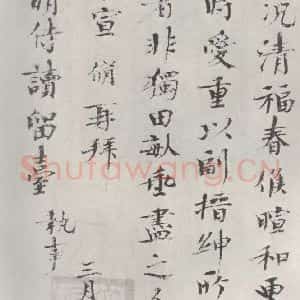 況清福春候暄和更
時愛重以副搢紳所
者非獨田畝垂盡之
宣俯再拜
三月
侍讀留臺執事
Shufawang.CN